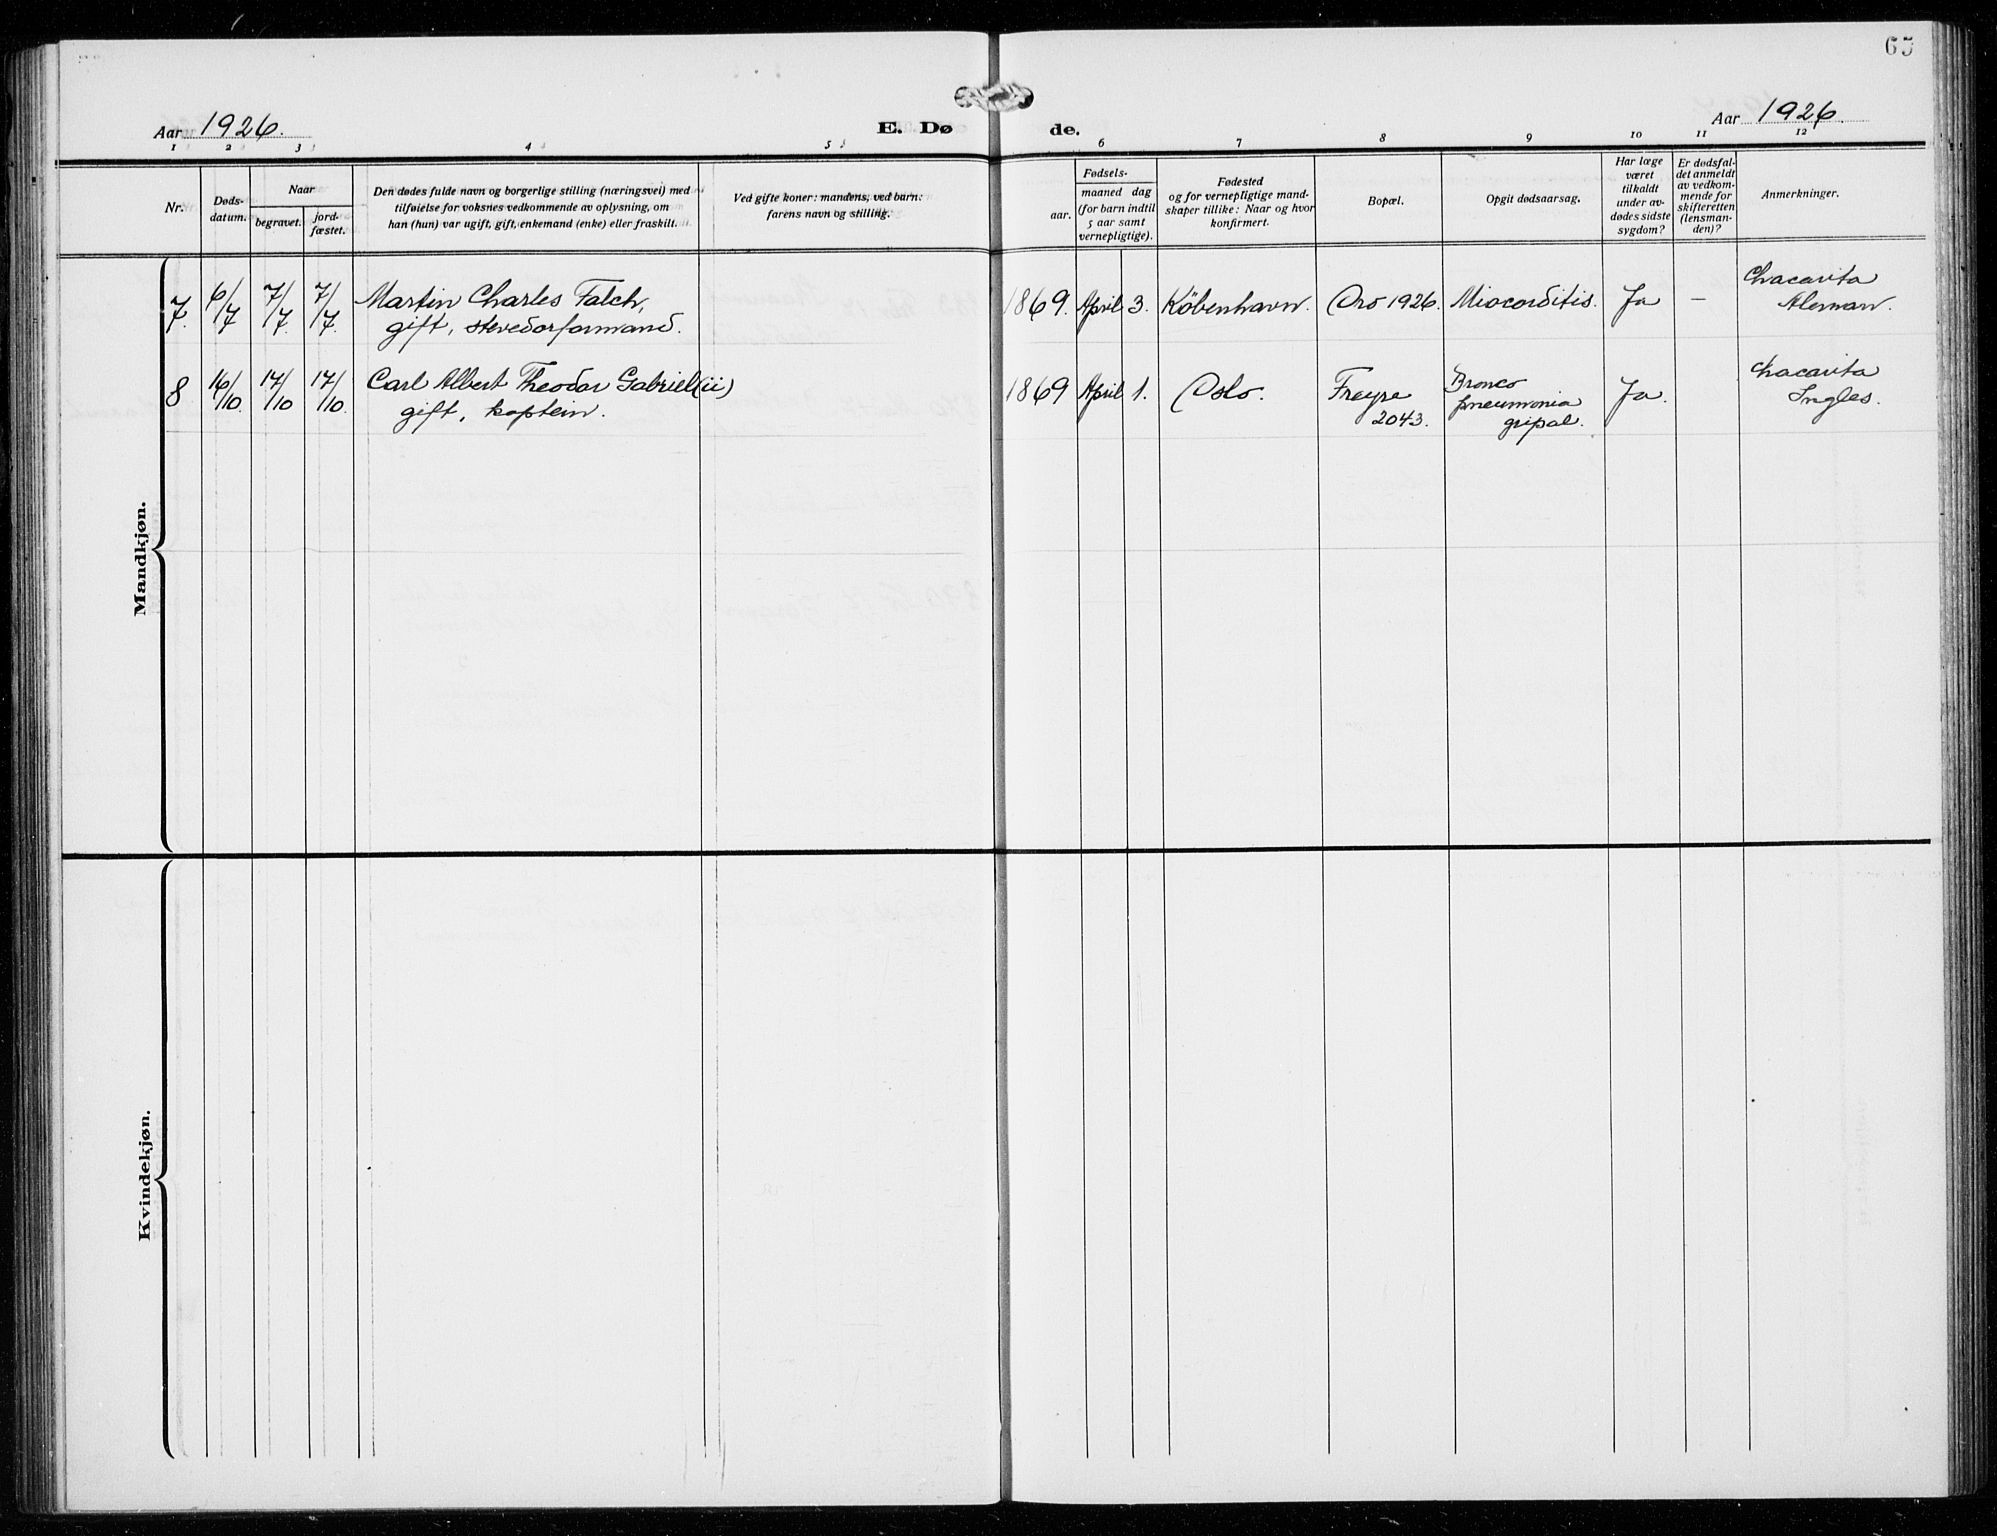 65
Aar 1926.
E. Dø
de.
Aar 1926.
1 2 3 4 5 6 7 8 9 10 11 12
Nr.
Døds-
datum.
Naar
begravet.
jord-
fæstet.
Den dødes fulde navn og borgerlige stilling (næringsvei) med
tilføielse for voksnes vedkommende av oplysning, om
han (hun) var ugift, gift, enkemand (enke) eller fraskilt.
Ved gifte koner: mandens, ved barn:
farens navn og stilling.
Fødsels-
aar.
maaned dag
(for barn indtil
5 aar samt
vernepligtige).
Fødested
og for vernepligtige mand-
skaper tillike: Naar og hvor
konfirmert.
Bopæl.
Opgit dødsaarsag.
Har læge
været
tilkaldt
under av-
dødes sidste
sygdom?
Er dødsfal-
det anmeldt
av vedkom-
mende for
skifteretten
(lensman-
den)?
Anmerkninger.
Mandkjøn.
7. 6/7 7/7. 7/7. Martin Charles Falch,
gift, stevedorformand.
1869. April 3. København. Oro 1926. Miocorditis. Ja —
Chacarita
Aleman.
8 16/10. 17/10 17/10. Carl Albert Theodor Gabriel(ii)
gift, kaptein.
1869 April 1. Oslo. Freyre
2043.
Bronco
pneumonia
gripal.
Ja.
Chacarita
Ingles.
Kvindekjøn.